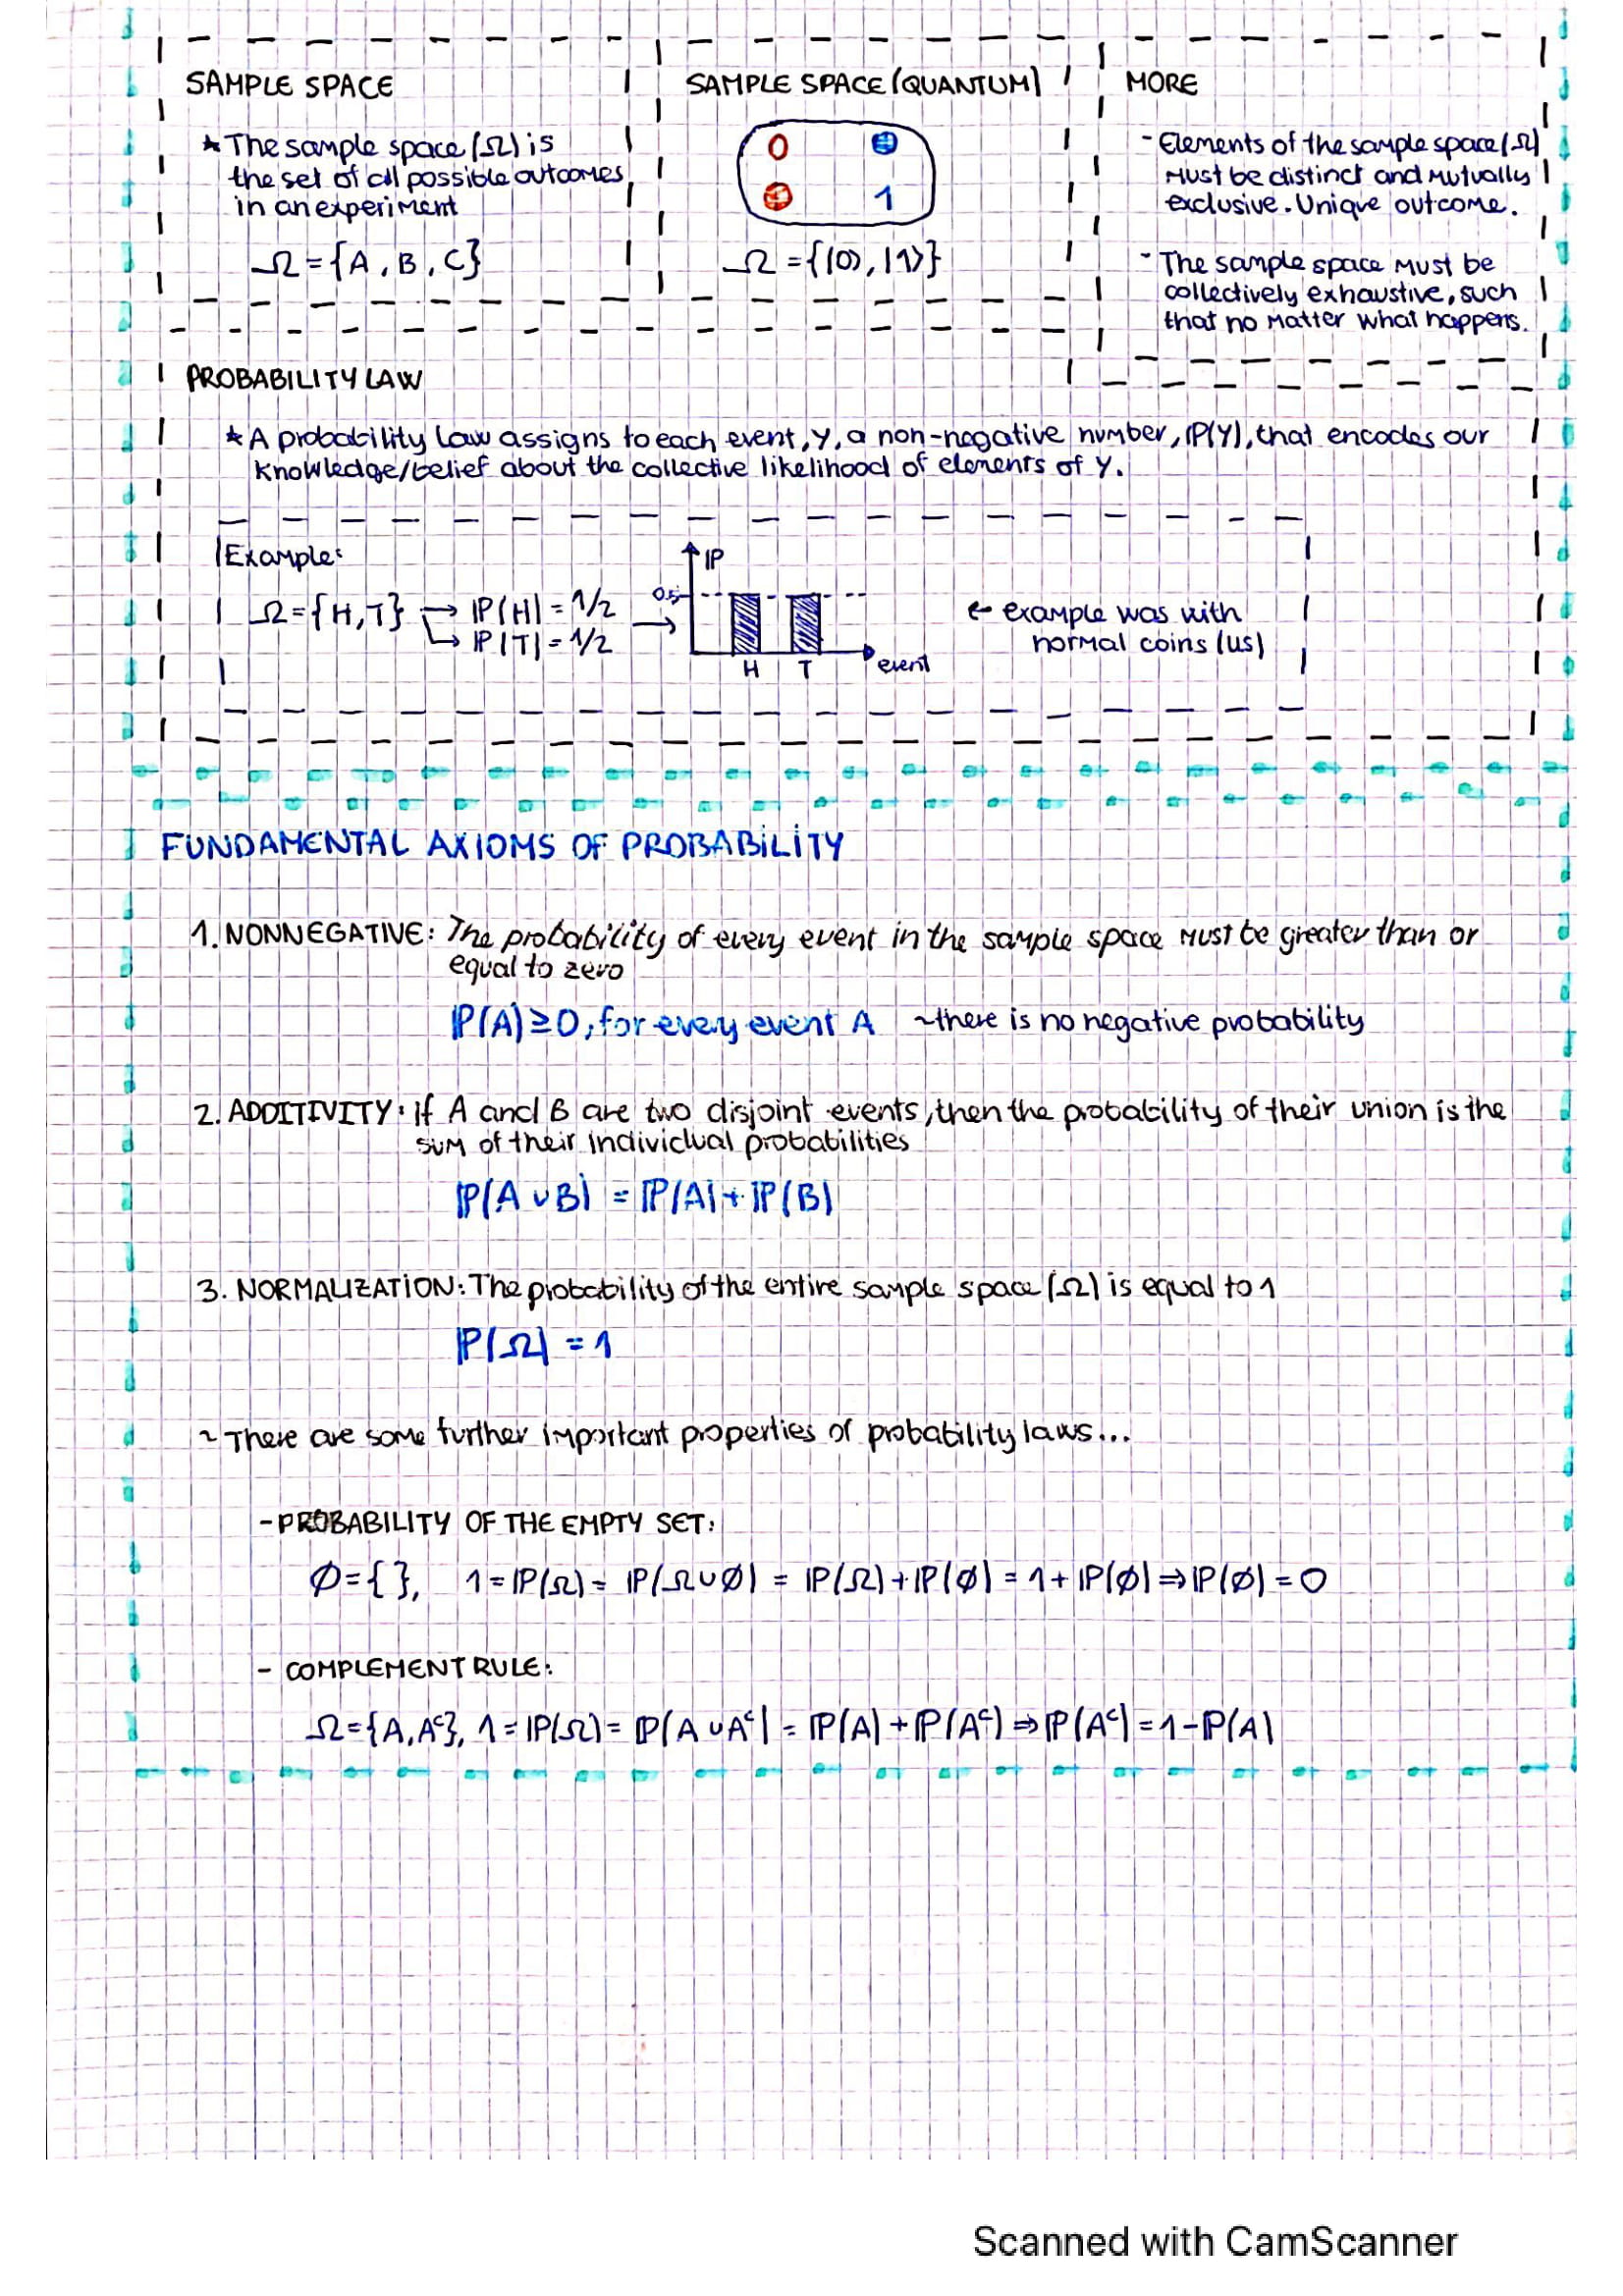 SAMPLE SPACE
* The sample space (Ω) is
the set of all possible outcomes
in an experiment
Ω = {A, B, C}
SAMPLE SPACE (QUANTUM)
0
1
Ω = {|0⟩, |1⟩}
MORE
- Elements of the sample space (Ω)
must be distinct and mutually
exclusive. Unique outcome.
- The sample space must be
collectively exhaustive, such
that no matter what happens.
PROBABILITY LAW
* A probability law assigns to each event, Y, a non-negative number, ℙ(Y), that encodes our
knowledge/belief about the collective likelihood of elements of Y.
Example:
Ω = {H, T} → ℙ(H) = 1/2
↳ ℙ(T) = 1/2
→
ℙ
0.5
H T
event
← example was with
normal coins (US)
FUNDAMENTAL AXIOMS OF PROBABILITY
1. NONNEGATIVE: The probability of every event in the sample space must be greater than or
equal to zero
ℙ(A) ≥ 0, for every event A ~there is no negative probability
2. ADDITIVITY: If A and B are two disjoint events, then the probability of their union is the
sum of their individual probabilities
ℙ(A ∪ B) = ℙ(A) + ℙ(B)
3. NORMALIZATION: The probability of the entire sample space (Ω) is equal to 1
ℙ(Ω) = 1
~ There are some further important properties of probability laws...
- PROBABILITY OF THE EMPTY SET:
Ø = { }, 1 = ℙ(Ω) = ℙ(Ω ∪ Ø) = ℙ(Ω) + ℙ(Ø) = 1 + ℙ(Ø) ⇒ ℙ(Ø) = 0
- COMPLEMENT RULE:
Ω = {A, Aᶜ}, 1 = ℙ(Ω) = ℙ(A ∪ Aᶜ) = ℙ(A) + ℙ(Aᶜ) ⇒ ℙ(Aᶜ) = 1 - ℙ(A)
Scanned with CamScanner